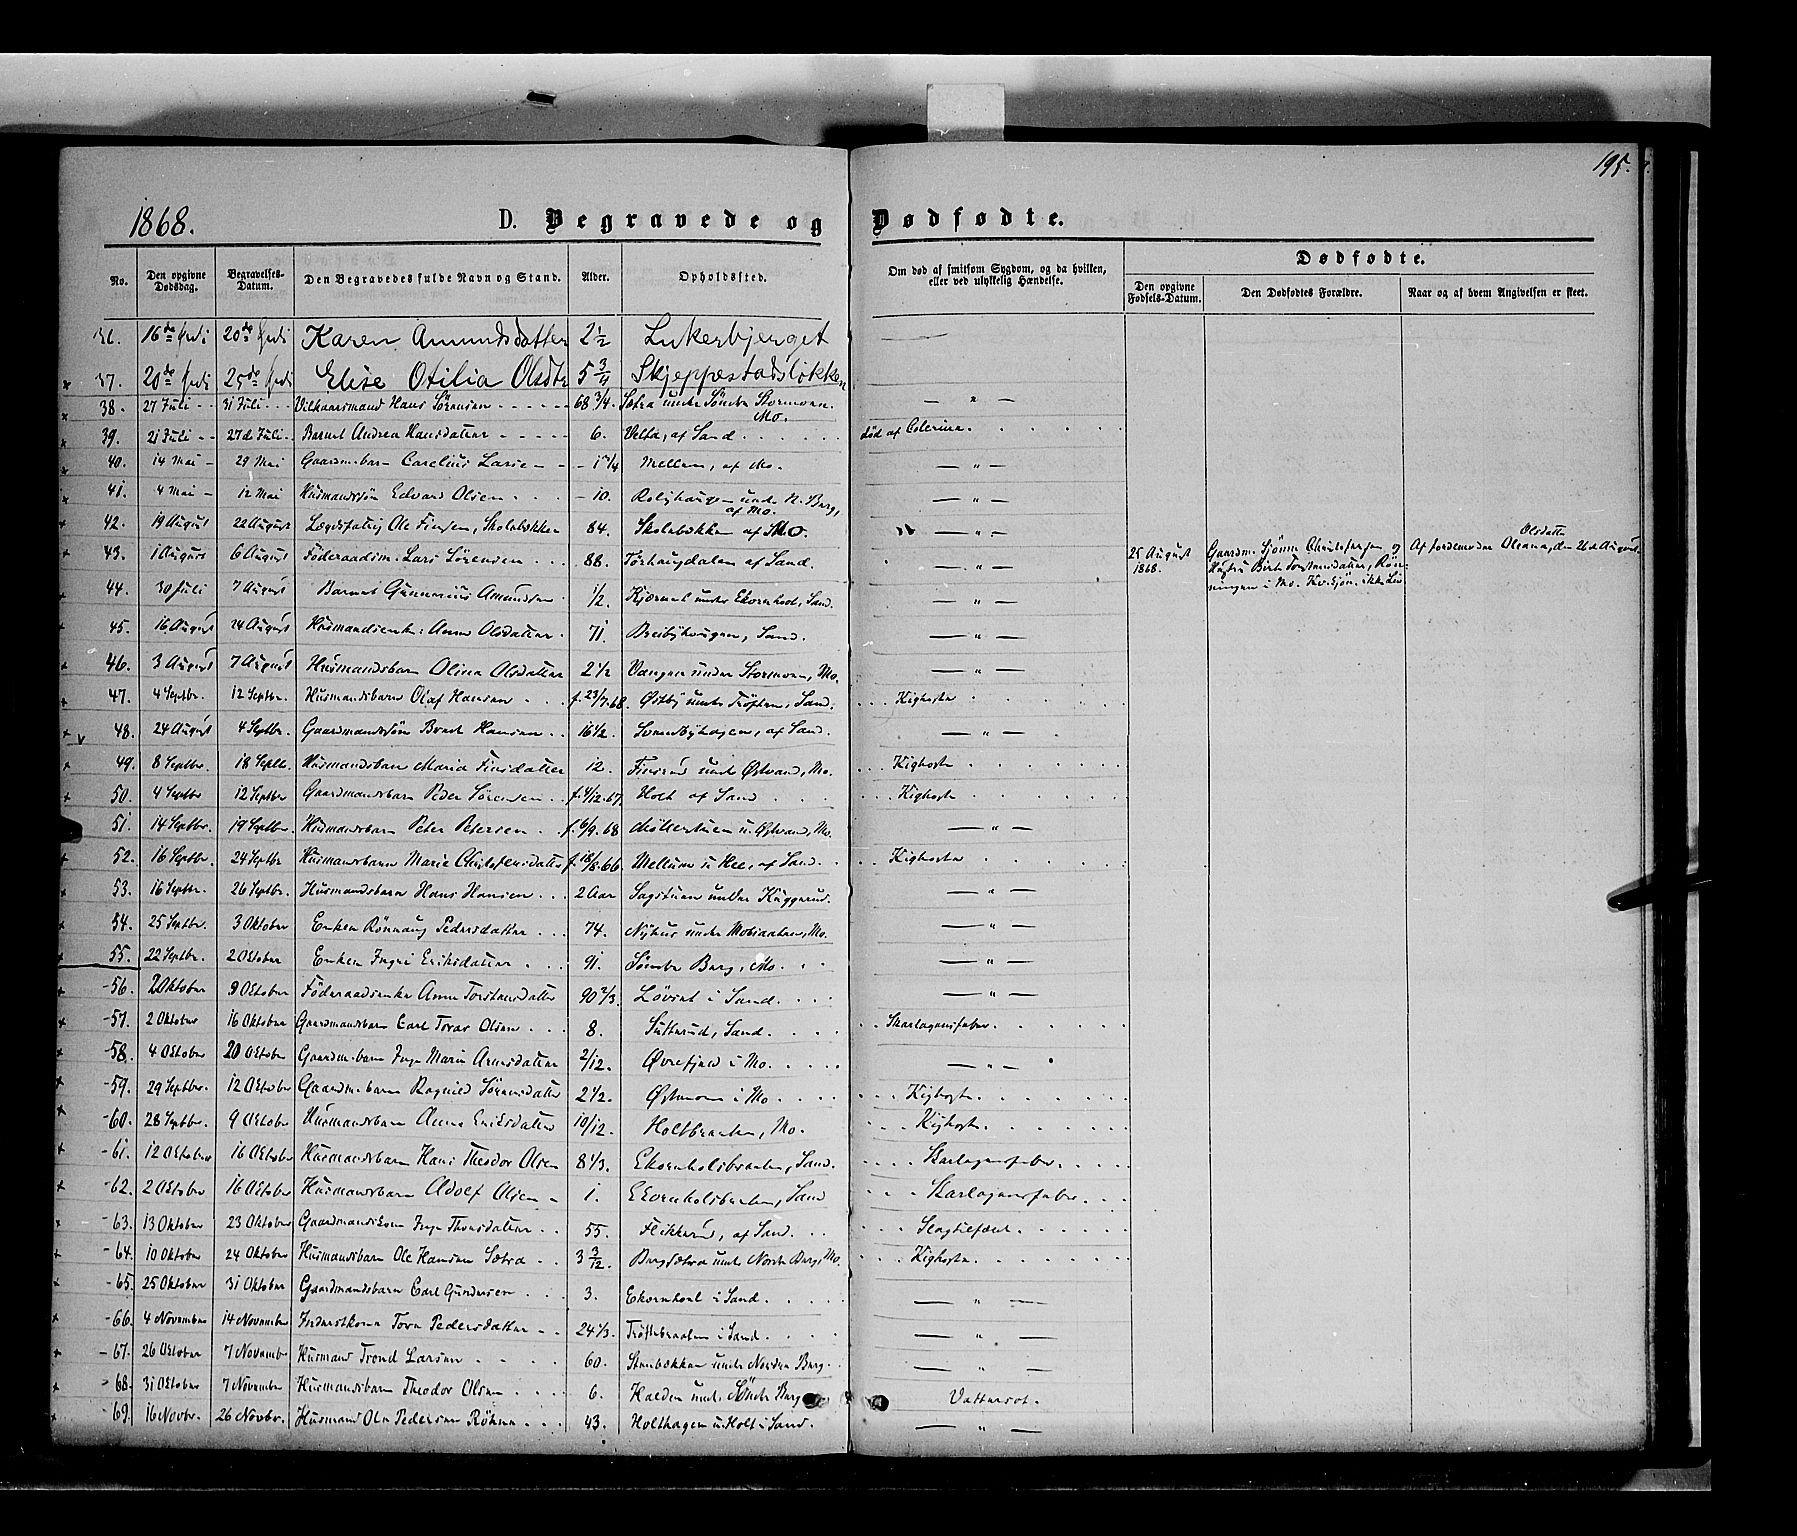 195.
1868.
D. Begravede og Dødfødte.
No. Den opgivne Dødsdag. Begravelses-Datum. Den Begravedes fulde Navn og Stand. Alder. Opholdssted. Om død af smitsom Sygdom, og da hvilken, eller ved ulykkelig Hændelse.
Dødfødte.
Den opgivne Fødsels-Datum. Den Dødfødtes Forældre. Naar og af hvem Angivelsen er skeet.
36. 16de Juli 20de Juli Karen Amundsdatter 2 1/2 Lukerbjerget —
37. 20de Juli 25de Juli Elise Otilia Olsdtr 5 3/4 Skjeppestadsløkken
38. 27 Juli 31 Juli Vilkaarsmand Hans Sörensen 68 3/4. Sætra under Søndre Stormoen Mo. — " —
39. 21 Juli 27 d Juli Barnet Andrea Hansdatter 6. Velta, af Sand død af Colerina.
40. 14 Mai 29 Mai Gaardm. barn Carelius Larse 1 3/4 Mellem, af Mo. — " —
41. 4 Mai 12 Mai Husmandssön Edvard Olsen 10. under N. Berg, af Mo. — " —
42. 19 August 22 August Lægdsfattig Ole Finsen, Skolebækken 84. Skolebækken af Mo. — " —
43. 1 August 6 August Föderaadsm. Lars Sörensen 88. Törhaugdalen af Sand. — " —
25 August 1868. Gaardm. Sjönne Christophersen og Hustru Birthe Torstensdatter, Rönningen i Mo. Kv.kjön. ikke Liv Af Jordemoder Oleana Olsdatter, den 26 d August.
44. 30 Juli 7 August Barnet Gunnerius Amundsen 1/2 Kjernet under Ekornholt, Sand. — " —
45. 16 August 24 August Husmandsenke: Anne Olsdatter 71. Breibyhaugen, Sand. — " —
46. 3 August 7 August Husmandsbarn Olina Olsdatter 2 1/2 Vangen under Stormoen, Mo. — " —
47. 4 Septbr. 12 Septbr. Husmandsbarn Olaf Hansen f. 23/7.68. Østby under Tröften, Sand. Kighoste
48. 24 August 4 Septbr. Gaardmandssön Bernt Hansen 16 1/2. Svensbyhagen, af Sand. — " —
49. 8 Septbr. 18 Septb. Husmandsbarn Maria Finsdatter 12. Finsrud under Østvand, Mo. Kighoste
50. 4 Septbr 12 Septbr Gaardmandsbarn Peder Sörensen f. 4/12.67. Holt af Sand Kighoste
51. 14 Septbr. 19 Septbr. Husmandsbarn Peter Petersen f. 6/9.68 Möllerstuen u. Østvand, Mo. — " —
52. 16 Septbr. 24 Septbr Husmandsbarn Marie Christensdatter f. 18/8.66. Mellum u. Hee, af Sand. Kighoste
53. 16 Septbr. 26 Septbr. Husmandsbarn Hans Hansen 2 Aar Sagstuen under Kuggerud. — " —
54. 25 Septbr. 3 Oktober Enken Rönnaug Pedersdatter 74. Nyhus under Mobraaten, Mo. — " —
55. 22 Septbr. 2 Oktober Enken Ingri Eriksdatter 91. Søndre Berg, Mo. — " —
56. 2 Oktober 9 Oktober Föderaadsenke Anne Torstensdatter 90 2/3. Lövset i Sand. — " —
57. 2 Oktober 16 Oktober Gaardmandsbarn Carl Torer Olsen 8. Sutterud, Sand. Skarlagensfeber.
58. 4 Oktober 20 Oktober Gaardm. barn Inge Marie Arnesdatter 2/12. Øvrefjeld i Mo. — " —
59. 29 Septbr. 12 Oktober Gaardm. barn Ragnild Sörensdatter 2 1/2. Østmoen i Mo Kighoste.
60. 28 Septbr. 9 Oktober Husmandsbarn Anna Eriksdatter 10/12. Holtbraaten, Mo. Kighoste.
61. 12 Oktober 16 Oktober Husmandsbarn Hans Theodor Olsen 8 1/3. Ekornholsbraaten, Sand. Skarlagensfeber.
62. 2 Oktober 16 Oktober Husmandsbarn Adolf Olsen 1. Ekornholsbraaten, Sand Skarlagensfeber
63. 13 Oktober 23 Oktober Gaardmandskone Inge Thorsdatter 55. Flikkerud, af Sand. Slagtilfælde.
64. 10 Oktober 24 Oktober Husmandsbarn Ole Hansen Sætra 3 3/12. Bergsætra under Nordre Berg, Mo. Kighoste.
65. 25 Oktober 31 Oktober Gaardmandsbarn Carl Gundersen 3. Ekornholt i Sand. — " —
66. 4 November 14 November Inderstkone Tora Pedersdatter 24 1/3. Tröftebraaten i Sand. — " —
67. 26 Oktober 7 November Husmand Trond Larsen 60. Stenbækken under Nordre Berg. — " —
68. 31 Oktober 7 November Husmandsbarn Theodor Olsen 6. Halden under Søndre Berg Vattersot.
69. 16 Novbr. 26 Novbr. Husmand Ole Pedersen Rönne 43. Holthagen u. Holt i Sand. — " —